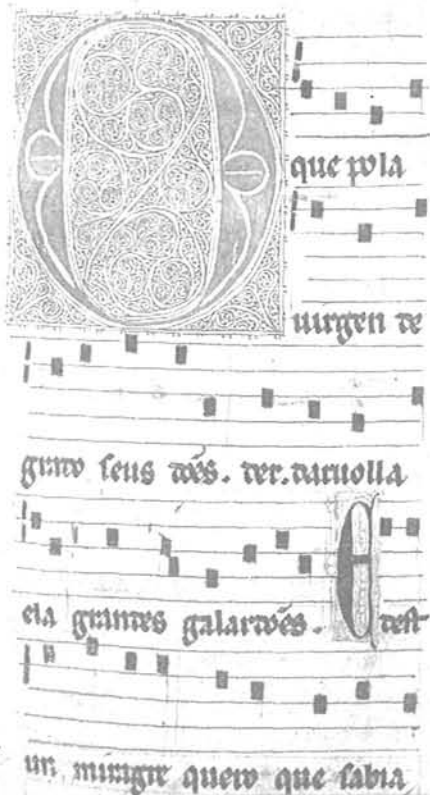 O que pola
uirgen de
grado seus dões. der. daruolla
ela grandes galardões. E dest
un miragre quero que sabia